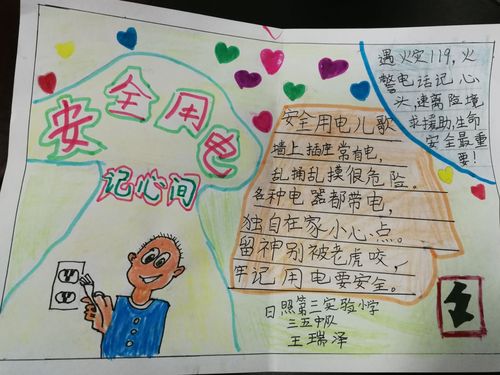 安全用电
记心间
遇火灾119,火
警电话记心
头,速离险境
求援助,生命
安全最重
要!
安全用电儿歌
墙上插座常有电,
乱捅乱摸很危险。
各种电器都带电,
独自在家小心点。
留神别被老虎咬,
牢记用电要安全。
日照第三实验小学
三五中队
王瑞泽